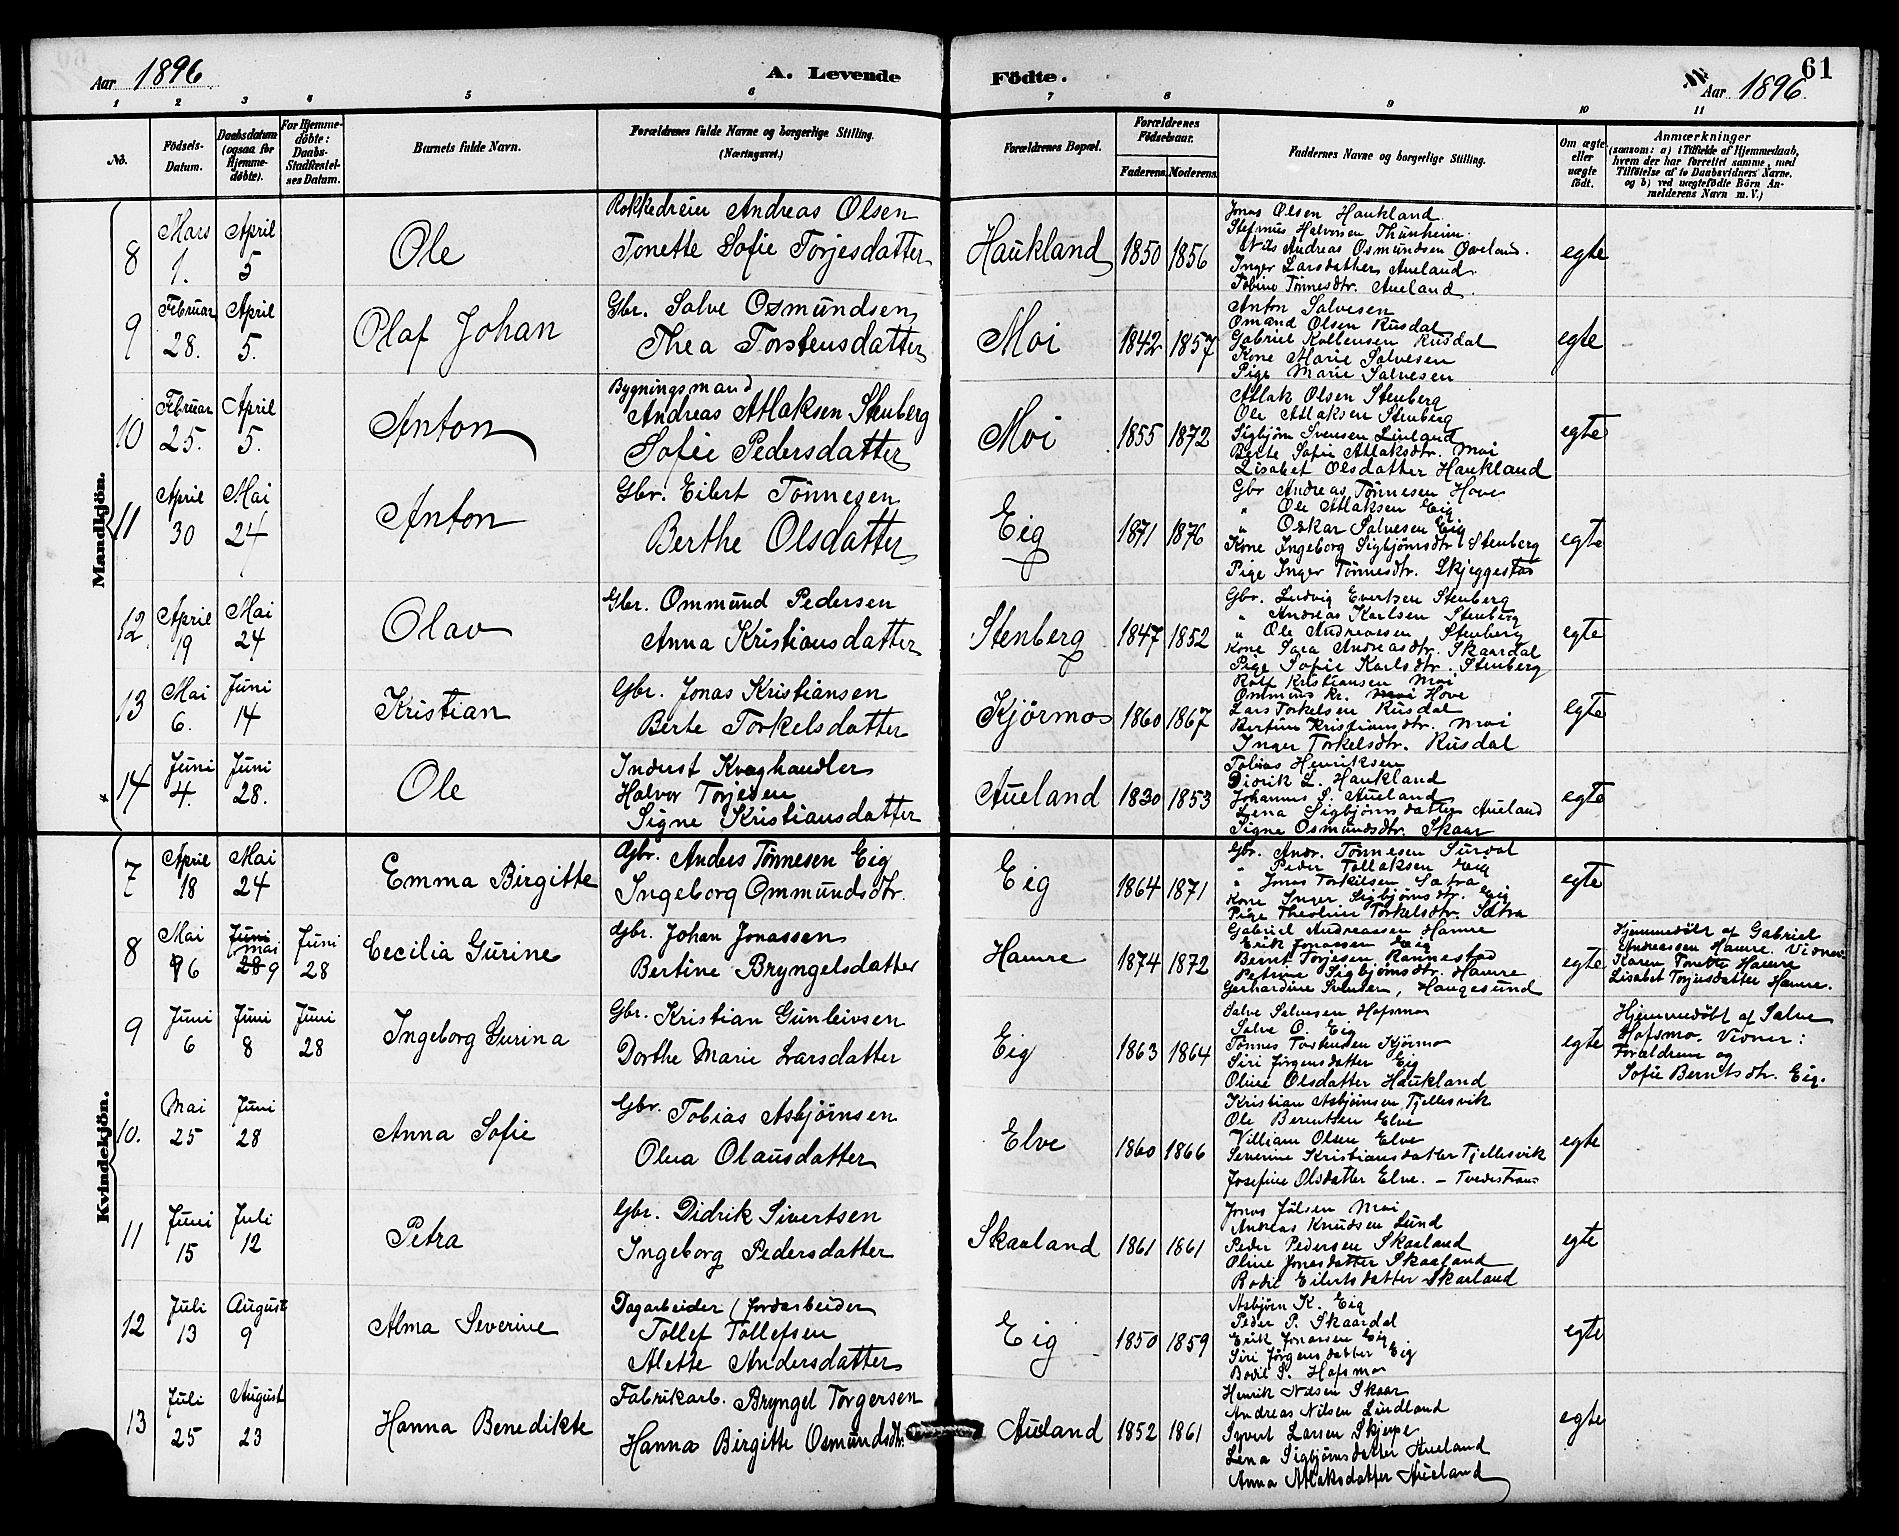 Aar 1896
A. Levende
Födte.
Aar 1896.
61
1 2 3 4 5 6 7 8 9 10 11
No.
Födsels-
Datum.
Daabsdatum
(ogsaa for
Hjemme-
döbte).
For Hjemme-
döbte:
Daabs-
Stadfæstel-
ses Datum.
Barnets fulde Navn.
Forældrenes fulde Navne og borgerlige Stilling.
(Næringsvei.)
Forældrenes Bopæl.
Forældrenes
Födselsaar.
Faderens.
Moderens.
Faddernes Navne og borgerlige Stilling.
Om ægte
eller
uægte
födt.
Anmærkninger
(saasom: a) i Tilfælde af Hjemmedaab,
hvem der har forrettet samme, med
Tilföielse af to Daabsvidners Navne.
og b) ved uægtefödte Börn An-
melderens Navn m. V.)
Mandkjön.
8
Mars
1.
April
5
Ole
Rokkedreier Andreas Olsen
Tonette Sofie Torjesdatter
Haukland
1850
1856
Jonas Olsen Haukland
Halvorsen
Nils Andreas Osmundsen
Inger Larsdatter Aueland
Tønnesdtr. Aueland
egte
9
Februar
28.
April
5.
Olaf Johan
Gbr. Salve Osmundsen
Thea Torstensdatter
Moi
1842
1857
Anton Salvesen
Omand Olsen Rusdal
Gabriel Rusdal
Kone Marie Salvesen
Pige Marie Salvesen
egte
10
Februar
25.
April
5.
Anton
Bygningsmand
Andreas Atlaksen Stenberg
Sofie Pedersdatter
Moi
1855
1872
Atlak Olsen Stenberg
Ole Atlaksen Stenberg
Sigbjörn Svensen
Berte Sofie Atlaksdtr. Moi
Lisabet Olsdatter Haukland
egte
11
April
30
Mai
24
Anton
Gbr. Eilert Tönnesen
Berthe Olsdatter
Eig
1871
1876
Gbr Andreas Tönnesen Hove
" Ole Atlaksen Eig
" Oskar Salvesen Eig
Kone Ingeborg Sigbjörnsdtr Stenberg
Pige Inger Tönnesdtr. Skjeggestad
egte
12
April
19
Mai
24
Olav
Gbr. Ommund Pedersen
Anna Kristiansdatter
Stenberg
1847
1852
Gbr. Ludvig Evertsen Stenberg
" Andreas Karlsen Stenberg
" Ole Andreassen Stenberg
Kone Sara Andreasdtr. Skaardal
Pige Sofie Karlsdtr. Stenberg
egte
13
Mai
6.
Juni
14
Kristian
Gbr. Jonas Kristiansen
Berte Torkelsdatter
Kjörmo
1860
1867
Rolf Kristiansen Moi
Ommund Kr. Moi Hove
Lars Torkelsen Rusdal
Kristiansdtr. Moi
Inger Torkelsdtr. Rusdal
egte
14
Juni
4.
Juni
28.
Ole
Inderst Kvæghandler
Halvor Torjesen
Signe Kristiansdatter
Aueland
1830
1853
Tobias Henriksen
Didrik L. Haukland
Johannes S. Aueland
Lena Sigbjörnsdatter Aueland
Signe Osmundsdtr. Skaar
egte
Kvindekjön.
7
April
18
Mai
24
Emma Birgitte
Gbr. Anders Tönnesen Eig
Ingeborg Ommundsdtr.
Eig
1864
1871
Gbr. Andr. Tönnesen
" Peder Tollaksen Eig
" Jonas Torkilsen Sætra
Kone Inger Sigbjörnsdtr. Eig
Pige Theoline Torkelsdtr. Sætra
egte
8
Mai
6
Juni
Mai
28 9
Juni
28
Cecilia Gurine
Gbr. Johan Jonassen
Bertine Bryngelsdatter
Hamre
1874
1872
Gabriel Andreassen Hamre
Erik Jonassen Eig
Bernt Torjesen Rannestad
Petrine Sigbjörnsdtr. Hamre
Gerhardine Svendsen, Haugesund
egte
Hjemmedöbt af Gabriel
Andreassen Hamre Vidner
Karen Tonette Hamre
Lisabet Torjusdatter Hamre.
9
Juni
6
Juni
8
Juni
28
Ingeborg Gurina
Gbr. Kristian Gunleivsen
Dorthe Marie Larsdatter
Eig
1863
1864
Salve Salvesen Hofsmo
Salve O. Eig
Tönnes Kjörmo
Siri Jörgensdatter Eig
Oline Olsdatter Haukland
egte
Hjemmedöbt af Salve
Hofsmo. Vidner:
Forældrene og
Sofie Berntsdtr. Eig.
10.
Mai
25
Juni
28
Anna Sofie
Gbr. Tobias Asbjörnsen
Olea Olausdatter
Elve
1860
1866
Kristian Asbjörnsen Tjellesvik
Ole Berentsen Elve
William Olsen Elve
Severine Kristiansdatter Tjellesvik
Josefine Olsdatter Elve. –
egte
11
Juni
15
Juli
12
Petra
Gbr. Didrik Sivertsen
Ingeborg Pedersdatter
Skaaland
1861
1861
Jonas Moi
Andreas Knudsen Lund
Peder Pedersen Skaaland
Oline Jonasdatter Skaaland
Bodil Eilertsdatter Skaaland
egte
12
Juli
13
August
9
Alma Severine
Dagarbeider (jordarbeider
Tollef Tollefsen
Alette Andersdatter
Eig
1850
1859
Asbjörn K. Eig
Peder P. Skaardal
Erik Jonassen Eig
Siri Jörgensdatter Eig
Bodil S. Hofsmo
egte
13
Juli
25
August
23
Hanna Benedikte
Fabrikarb. Bryngel Torgersen
Hanna Birgitte Osmundsdtr.
Aueland
1852
1861
Henrik Nilsen Skaar
Andreas Nilsen Lindland
Syvert Larsen Skjerpe
Lena Sigbjörnsdatter Aueland
Anna Atlaksdatter Aueland
egte